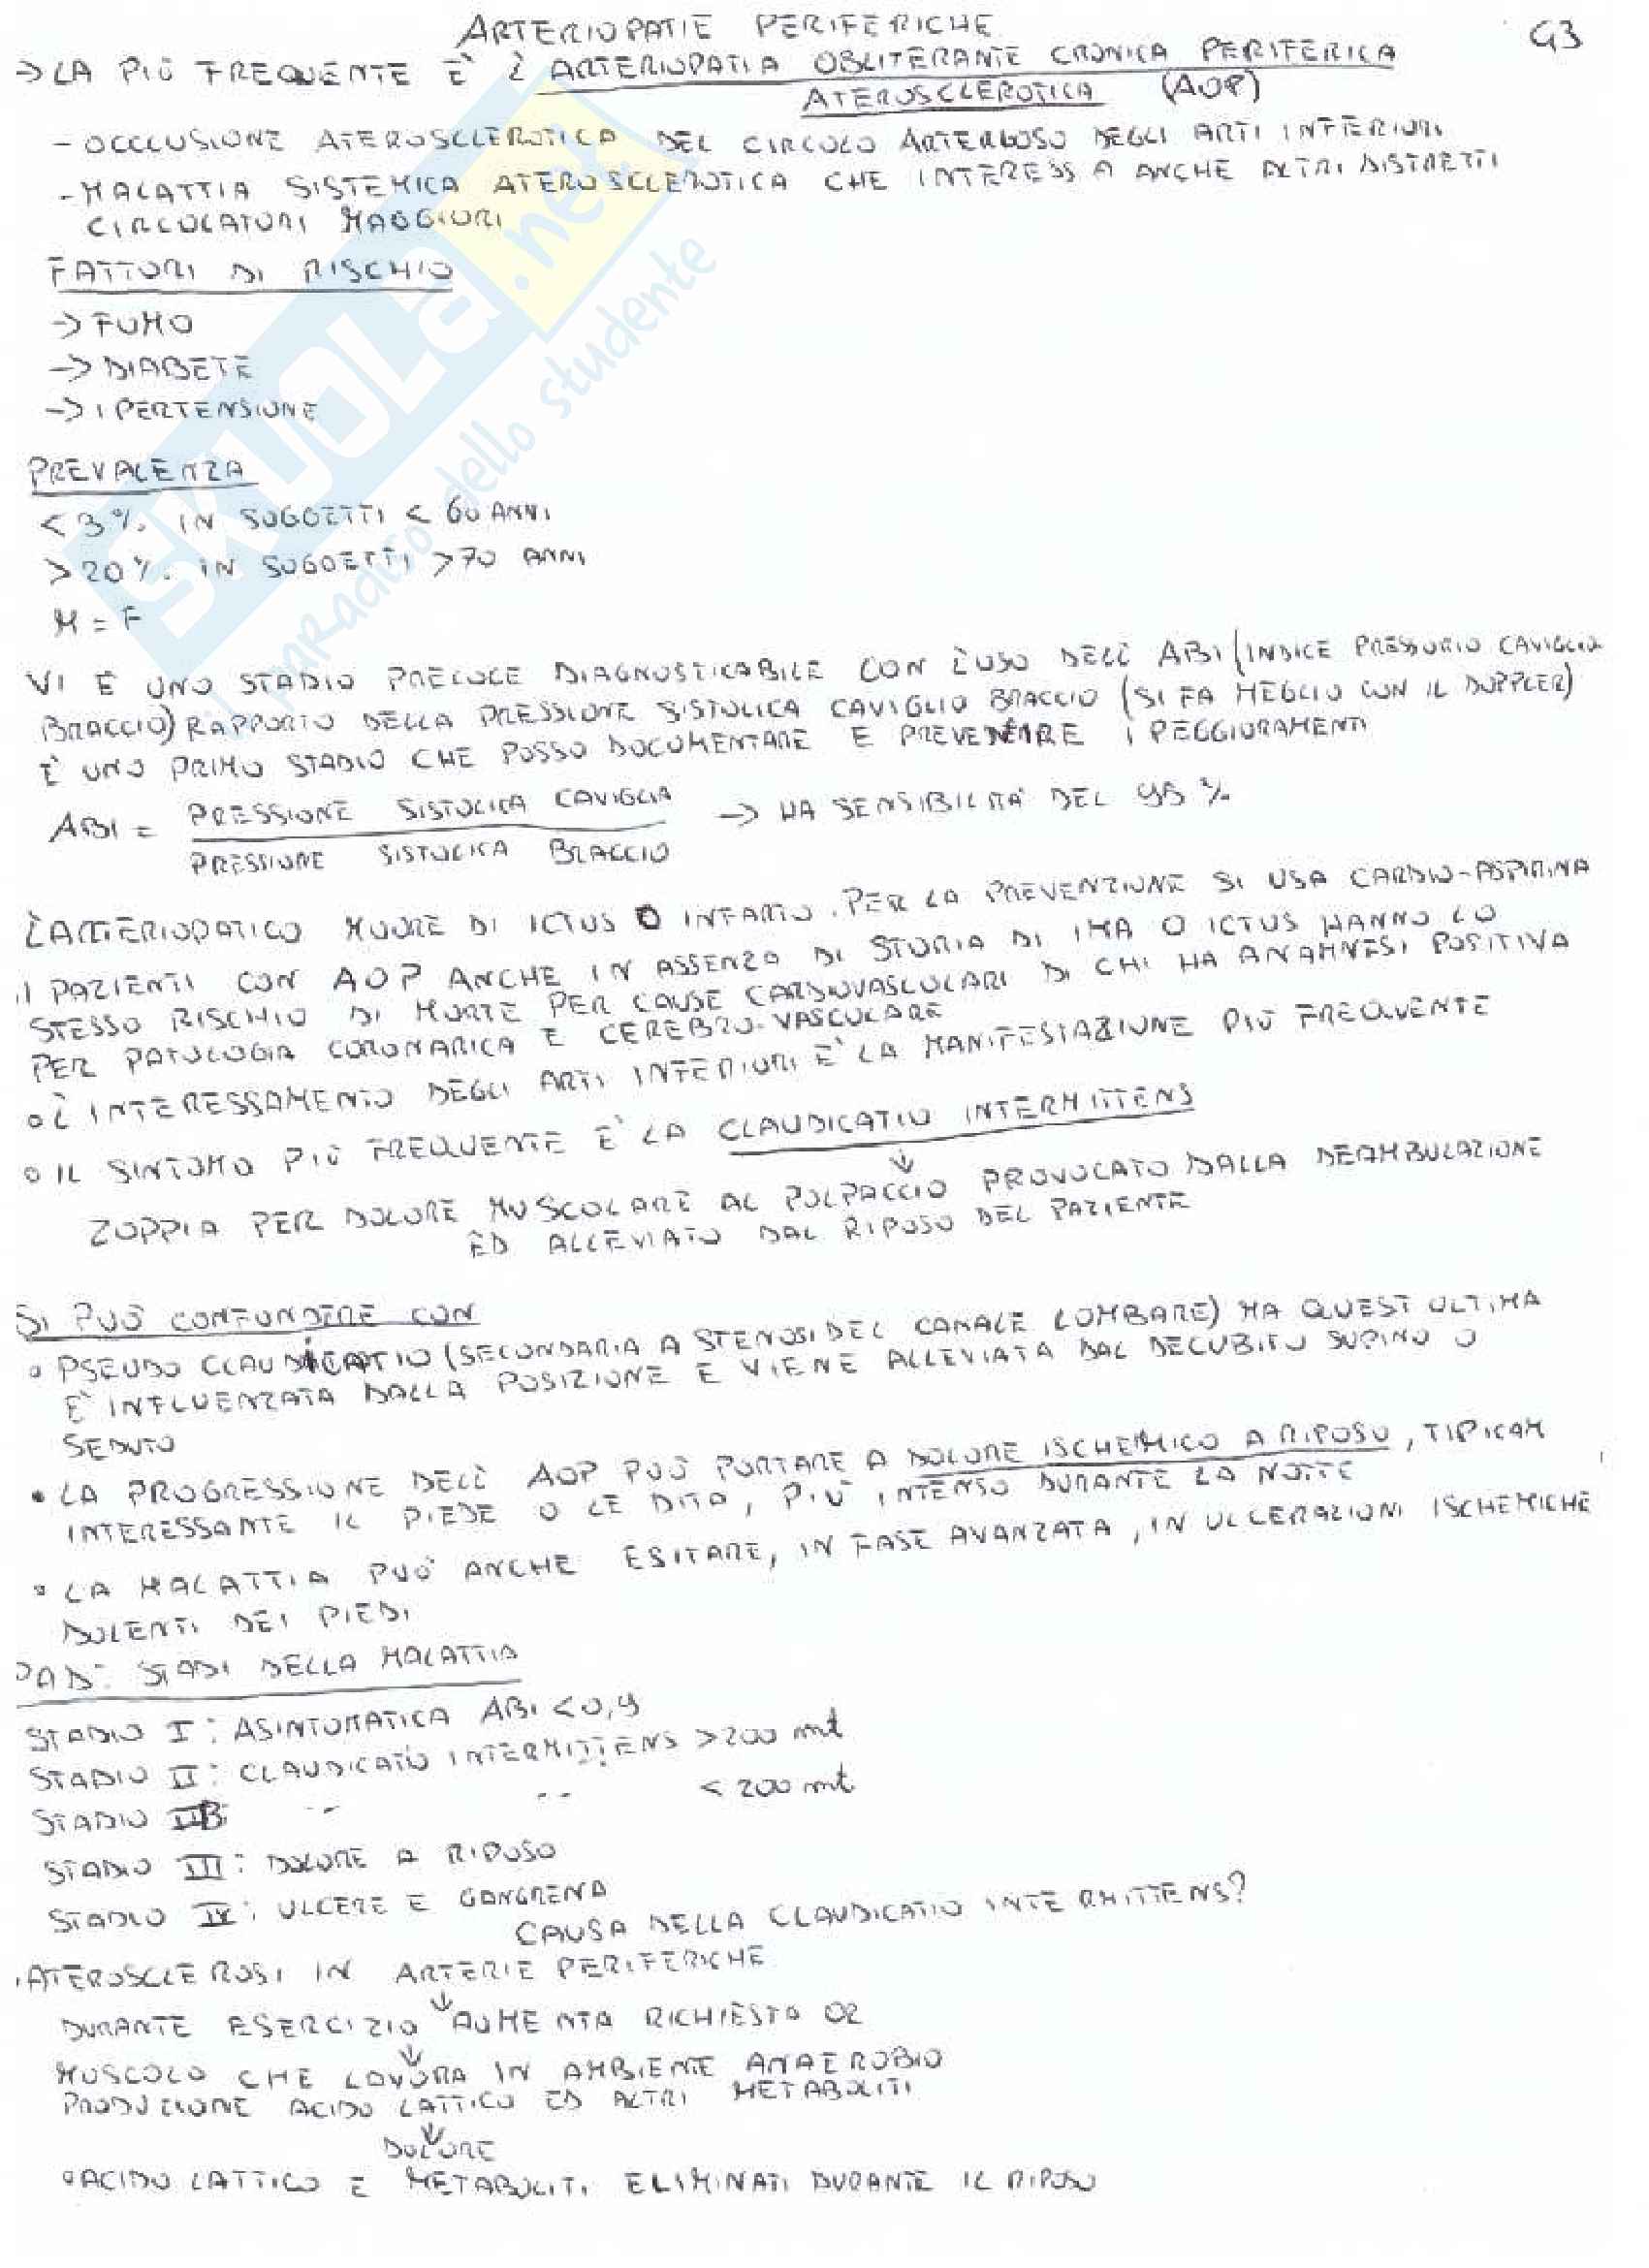 ARTERIOPATIE PERIFERICHE
93
→ LA PIÙ FREQUENTE È L'ARTERIOPATIA OBLITERANTE CRONICA PERIFERICA
ATEROSCLEROTICA (AOP)
- OCCLUSIONE ATEROSCLEROTICA DEL CIRCOLO ARTERIOSO DEGLI ARTI INFERIORI
- MALATTIA SISTEMICA ATEROSCLEROTICA CHE INTERESSA ANCHE ALTRI DISTRETTI
CIRCOLATORI MAGGIORI
FATTORI DI RISCHIO
→ FUMO
→ DIABETE
→ IPERTENSIONE
PREVALENZA
< 3% IN SOGGETTI < 60 ANNI
> 20% IN SOGGETTI > 70 ANNI
M = F
VI È UNO STADIO PRECOCE DIAGNOSTICABILE CON L'USO DELL' ABI (INDICE PRESSORIO CAVIGLIA
BRACCIO) RAPPORTO DELLA PRESSIONE SISTOLICA CAVIGLIO BRACCIO (SI FA MEGLIO CON IL DOPPLER)
È UNO PRIMO STADIO CHE POSSO DOCUMENTARE E PREVENIRE I PEGGIORAMENTI
ABI = PRESSIONE SISTOLICA CAVIGLIA → HA SENSIBILITÀ DEL 95%
PRESSIONE SISTOLICA BRACCIO
L'ARTERIOPATICO MUORE DI ICTUS O INFARTO. PER LA PREVENZIONE SI USA CARDIO-ASPIRINA
I PAZIENTI CON AOP ANCHE IN ASSENZA DI STORIA DI IMA O ICTUS HANNO LO
STESSO RISCHIO DI MORTE PER CAUSE CARDIOVASCOLARI DI CHI HA ANAMNESI POSITIVA
PER PATOLOGIA CORONARICA E CEREBRO-VASCOLARE
o L'INTERESSAMENTO DEGLI ARTI INFERIORI È LA MANIFESTAZIONE PIÙ FREQUENTE
o IL SINTOMO PIÙ FREQUENTE È LA CLAUDICATIO INTERMITTENS
↓
ZOPPIA PER DOLORE MUSCOLARE AL POLPACCIO PROVOCATO DALLA DEAMBULAZIONE
ED ALLEVIATO DAL RIPOSO DEL PAZIENTE
SI PUÒ CONFONDERE CON
o PSEUDO CLAUDICATIO (SECONDARIA A STENOSI DEL CANALE LOMBARE) MA QUEST'ULTIMA
È INFLUENZATA DALLA POSIZIONE E VIENE ALLEVIATA DAL DECUBITO SUPINO O
SEDUTO
• LA PROGRESSIONE DELL' AOP PUÒ PORTARE A DOLORE ISCHEMICO A RIPOSO, TIPICAM
INTERESSANTE IL PIEDE O LE DITA, PIÙ INTENSO DURANTE LA NOTTE
• LA MALATTIA PUÒ ANCHE ESITARE, IN FASE AVANZATA, IN ULCERAZIONI ISCHEMICHE
DOLENTI DEI PIEDI
PAD: STADI DELLA MALATTIA
STADIO I: ASINTOMATICA ABI < 0,9
STADIO II: CLAUDICATIO INTERMITTENS > 200 mt
STADIO IIB: " " < 200 mt
STADIO III: DOLORE A RIPOSO
STADIO IV: ULCERE E GANGRENA
CAUSA DELLA CLAUDICATIO INTERMITTENS?
ATEROSCLEROSI IN ARTERIE PERIFERICHE
↓
DURANTE ESERCIZIO AUMENTA RICHIESTA O2
↓
MUSCOLO CHE LAVORA IN AMBIENTE ANAEROBIO
PRODUZIONE ACIDO LATTICO ED ALTRI METABOLITI
↓
DOLORE
o ACIDO LATTICO E METABOLITI ELIMINATI DURANTE IL RIPOSO
SKUOLA.net
il paradiso dello studente